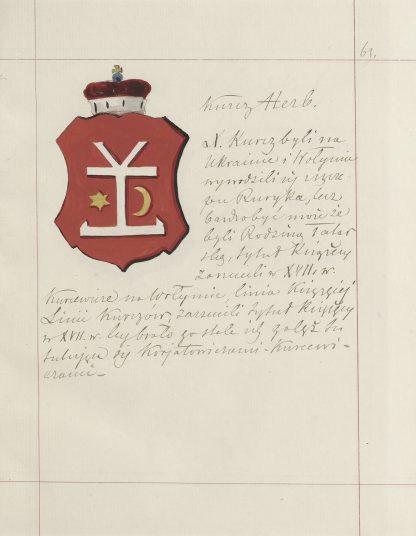 61.
Kurcz Herb.
N. Kurcz byli na
Ukrainie i Wołyniu
wywodzili się
Ruryka, lecz
bardzo być może że
byli Rodziną Tatar
ską, tytuł Książęcy
zarzucili w XVII. w.
Kurcewicze na Wołyniu, linia Książęcej
Linii Kurczow, zarzucili tytuł Książęcy
w XVII. w. używało go stale
się Korjatowiczami-Kurcewi-
czami.-